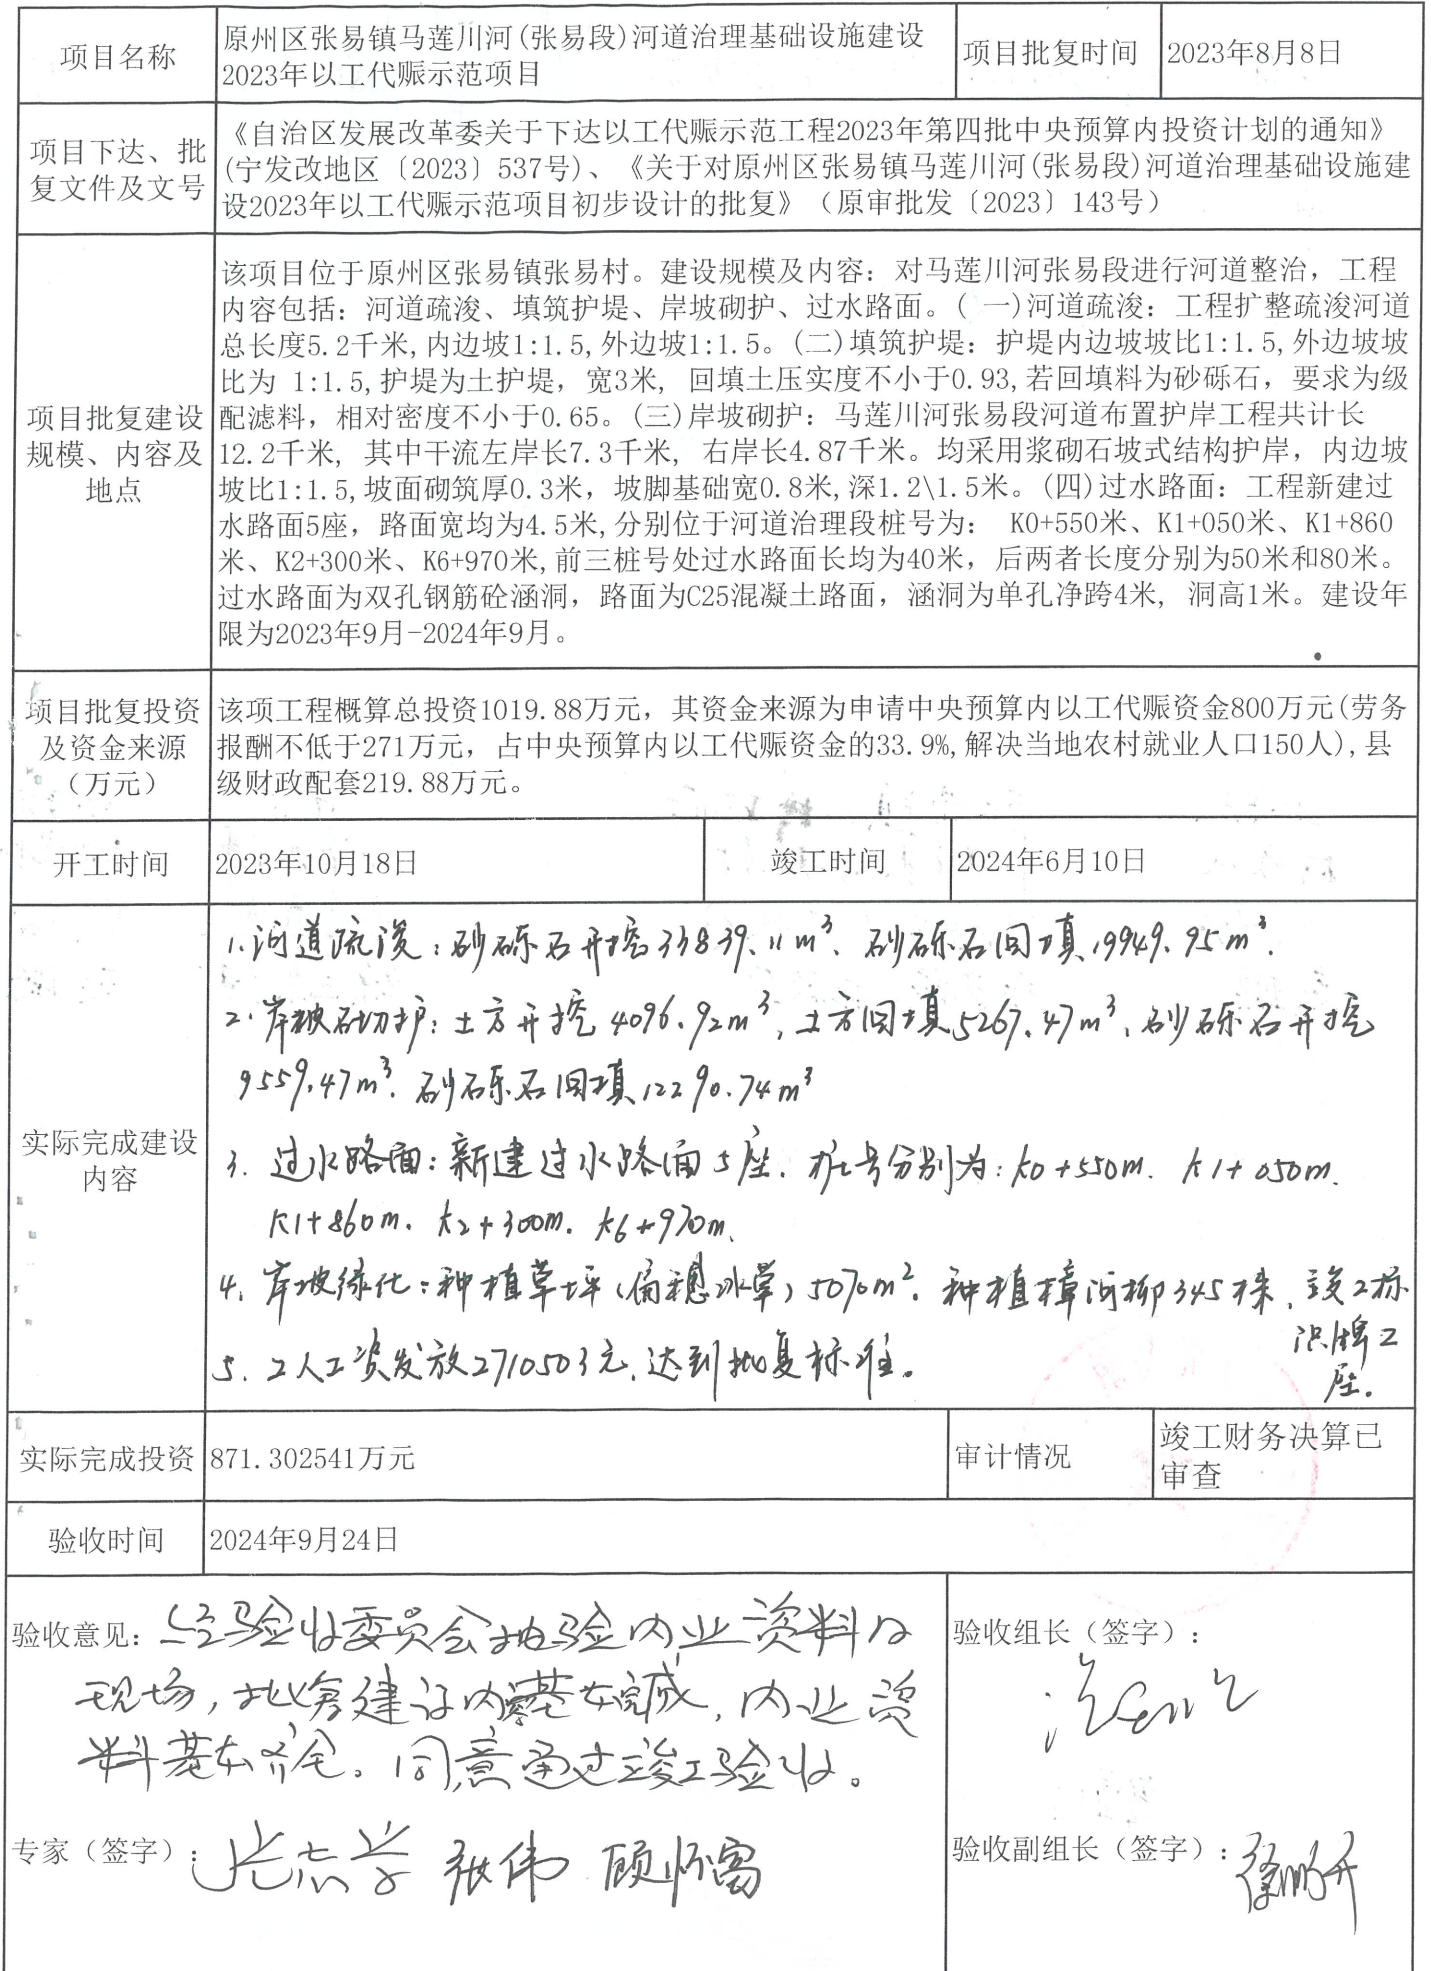 项目名称
原州区张易镇马莲川河(张易段)河道治理基础设施建设
2023年以工代赈示范项目
项目批复时间
2023年8月8日
项目下达、批
复文件及文号
《自治区发展改革委关于下达以工代赈示范工程2023年第四批中央预算内投资计划的通知》
(宁发改地区〔2023〕537号)、《关于对原州区张易镇马莲川河(张易段)河道治理基础设施建
设2023年以工代赈示范项目初步设计的批复》（原审批发〔2023〕143号）
项目批复建设
规模、内容及
地点
该项目位于原州区张易镇张易村。建设规模及内容：对马莲川河张易段进行河道整治，工程
内容包括：河道疏浚、填筑护堤、岸坡砌护、过水路面。(一)河道疏浚：工程扩整疏浚河道
总长度5.2千米,内边坡1:1.5,外边坡1:1.5。(二)填筑护堤：护堤内边坡坡比1:1.5,外边坡坡
比为 1:1.5,护堤为土护堤，宽3米, 回填土压实度不小于0.93,若回填料为砂砾石，要求为级
配滤料，相对密度不小于0.65。(三)岸坡砌护：马莲川河张易段河道布置护岸工程共计长
12.2千米, 其中干流左岸长7.3千米, 右岸长4.87千米。均采用浆砌石坡式结构护岸，内边坡
坡比1:1.5,坡面砌筑厚0.3米，坡脚基础宽0.8米,深1.2\1.5米。(四)过水路面：工程新建过
水路面5座，路面宽均为4.5米,分别位于河道治理段桩号为： K0+550米、K1+050米、K1+860
米、K2+300米、K6+970米,前三桩号处过水路面长均为40米，后两者长度分别为50米和80米。
过水路面为双孔钢筋砼涵洞，路面为C25混凝土路面，涵洞为单孔净跨4米, 洞高1米。建设年
限为2023年9月-2024年9月。
项目批复投资
及资金来源
（万元）
该项工程概算总投资1019.88万元，其资金来源为申请中央预算内以工代赈资金800万元(劳务
报酬不低于271万元，占中央预算内以工代赈资金的33.9%,解决当地农村就业人口150人),县
级财政配套219.88万元。
开工时间
2023年10月18日
竣工时间
2024年6月10日
实际完成建设
内容
1.河道疏浚：砂砾石开挖33839.11m³、砂砾石回填19949.95m³.
2.岸坡砌护：土方开挖4096.92m³,土方回填5267.47m³、砂砾石开挖
9559.47m³.砂砾石回填12290.74m³
3. 过水路面：新建过水路面5座. 桩号分别为：K0+550m. K1+050m.
K1+860m. K2+300m. K6+970m.
4. 岸坡绿化：种植草坪（扁穗冰草）5070m². 种植樟河柳345株、设立标
识牌2
座.
5. 工人工资发放2710503元,达到批复标准。
实际完成投资
871.302541万元
审计情况
竣工财务决算已
审查
验收时间
2024年9月24日
验收意见：经验收委员会抽验内业资料及
现场，批复建设内容基本完成，内业资
料基本齐全。同意通过竣工验收。
验收组长（签字）：
专家（签字）：
张伟 顾怀富
验收副组长（签字）：